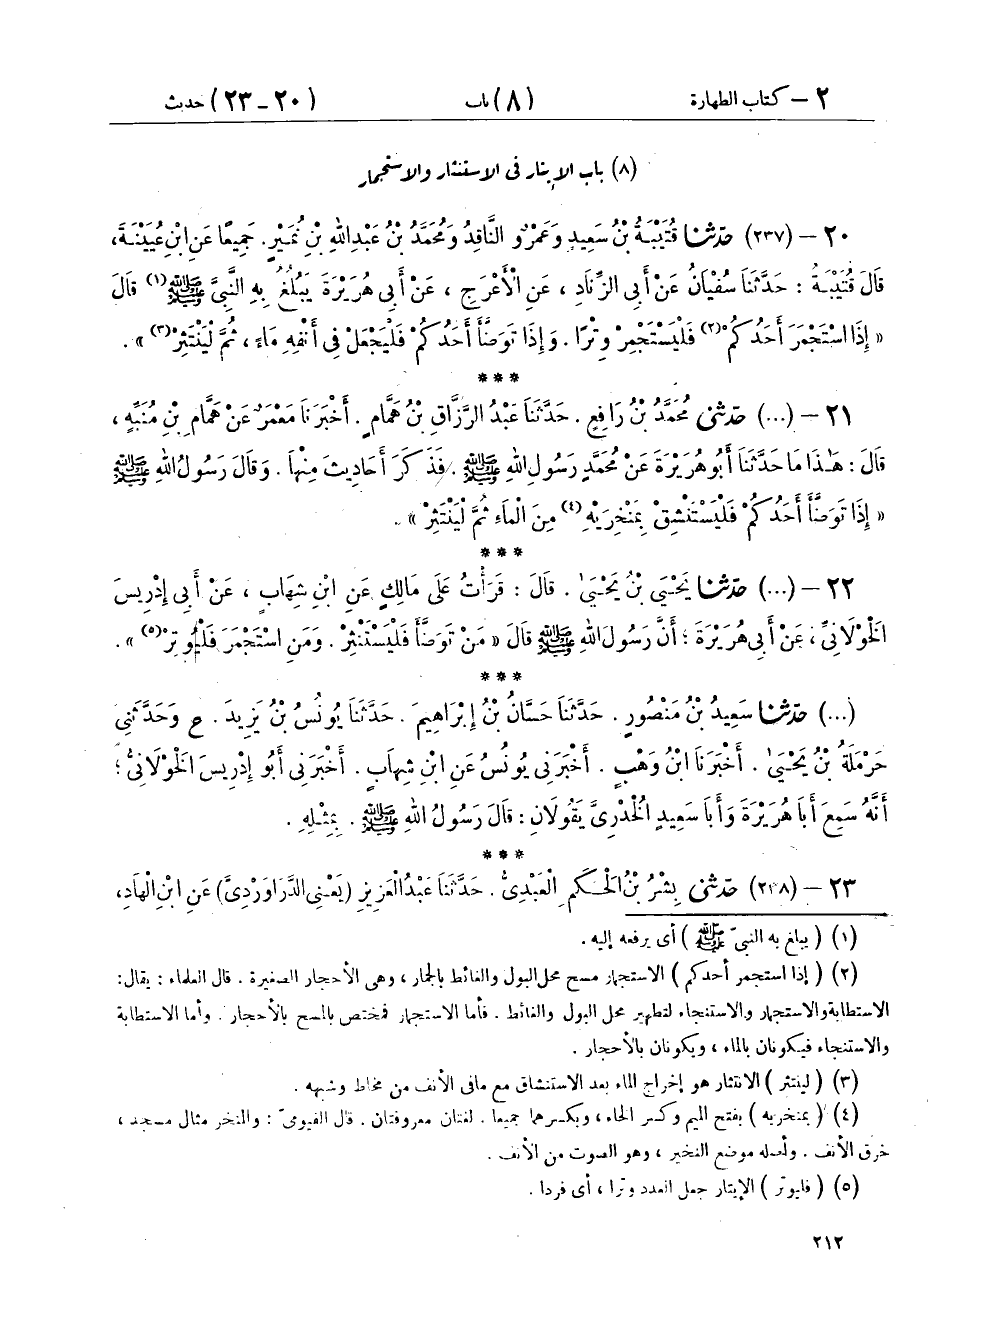 ٢ – كتاب الطهارة (٨) باب (٢٠ – ٢٣) حديث
(٨) باب الإيتار فى الاستنثار والاستجمار
٢٠ – (٢٣٧) حَدَّثَنَا قُتَيْبَةُ بْنُ سَعِيدٍ وَعَمْرٌو النَّاقِدُ وَمُحَمَّدُ بْنُ عَبْدِاللهِ بْنِ نُمَيْرٍ. جَمِيعًا عَنِ ابْنِ عُيَيْنَةَ،
قَالَ قُتَيْبَةُ : حَدَّثَنَا سُفْيَانُ عَنْ أَبِى الزِّنَادِ ، عَنِ الْأَعْرَجِ ، عَنْ أَبِى هُرَيْرَةَ يَبْلُغُ بِهِ النَّبِىَّ ﷺ(١) قَالَ
« إِذَا اسْتَجْمَرَ أَحَدُكُمْ(٢) فَلْيَسْتَجْمِرْ وِتْرًا . وَإِذَا تَوَضَّأَ أَحَدُكُمْ فَلْيَجْعَلْ فِى أَنْفِهِ مَاءً ، ثُمَّ لْيَنْتَثِرْ(٣) » .
***
٢١ – (...) حَدَّثَنِى مُحَمَّدُ بْنُ رَافِعٍ . حَدَّثَنَا عَبْدُ الرَّزَّاقِ بْنُ هَمَّامٍ . أَخْبَرَنَا مَعْمَرٌ عَنْ هَمَّامِ بْنِ مُنَبِّهٍ ،
قَالَ : هَٰذَا مَا حَدَّثَنَا أَبُو هُرَيْرَةَ عَنْ مُحَمَّدٍ رَسُولِ اللهِ ﷺ . فَذَكَرَ أَحَادِيثَ مِنْهَا . وَقَالَ رَسُولُ اللهِ ﷺ
« إِذَا تَوَضَّأَ أَحَدُكُمْ فَلْيَسْتَنْشِقْ بِمَنْخِرَيْهِ(٤) مِنَ الْمَاءِ ثُمَّ لْيَنْتَثِرْ » .
***
٢٢ – (...) حَدَّثَنَا يَحْيَىٰ بْنُ يَحْيَىٰ . قَالَ : قَرَأْتُ عَلَى مَالِكٍ عَنِ ابْنِ شِهَابٍ ، عَنْ أَبِى إِدْرِيسَ
الْخَوْلَانِىِّ ، عَنْ أَبِى هُرَيْرَةَ ؛ أَنَّ رَسُولَ اللهِ ﷺ قَالَ « مَنْ تَوَضَّأَ فَلْيَسْتَنْثِرْ . وَمَنِ اسْتَجْمَرَ فَلْيُوتِرْ(٥) » .
***
(...) حَدَّثَنَا سَعِيدُ بْنُ مَنْصُورٍ . حَدَّثَنَا حَسَّانُ بْنُ إِبْرَاهِيمَ . حَدَّثَنَا يُونُسُ بْنُ يَزِيدَ . ح وَحَدَّثَنِى
حَرْمَلَةُ بْنُ يَحْيَىٰ . أَخْبَرَنَا ابْنُ وَهْبٍ . أَخْبَرَنِى يُونُسُ عَنِ ابْنِ شِهَابٍ . أَخْبَرَنِى أَبُو إِدْرِيسَ الْخَوْلَانِىُّ ؛
أَنَّهُ سَمِعَ أَبَا هُرَيْرَةَ وَأَبَا سَعِيدٍ الْخُدْرِىَّ يَقُولَانِ : قَالَ رَسُولُ اللهِ ﷺ . بِمِثْلِهِ .
***
٢٣ – (٢٣٨) حَدَّثَنِى بِشْرُ بْنُ الْحَكَمِ الْعَبْدِىُّ . حَدَّثَنَا عَبْدُ الْعَزِيزِ (يَعْنِى الدَّرَاوَرْدِىَّ) عَنِ ابْنِ الْهَادِ،
(١) ( يبلغ به النبىّ ﷺ ) أى يرفعه إليه .
(٢) ( إذا استجمر أحدكم ) الاستجمار مسح محل البول والغائط بالجمار ، وهى الأحجار الصغيرة . قال العلماء : يقال:
الاستطابة والاستجمار والاستنجاء لتطهير محل البول والغائط . فأما الاستجمار فمختص بالمسح بالأحجار . وأما الاستطابة
والاستنجاء فيكونان بالماء ، ويكونان بالأحجار .
(٣) ( لينتثر ) الانتثار هو إخراج الماء بعد الاستنشاق مع مافى الأنف من مخاط وشبهه .
(٤) ( بمنخريه ) بفتح الميم وكسر الخاء ، وبكسرهما جميعا . لغتان معروفتان . قال الفيومىّ : والمنخر مثال مسجد ،
خرق الأنف . وأصله موضع النخير ، وهو الصوت من الأنف .
(٥) ( فليوتر ) الإيتار جعل العدد وترا ، أى فردا .
٢١٢